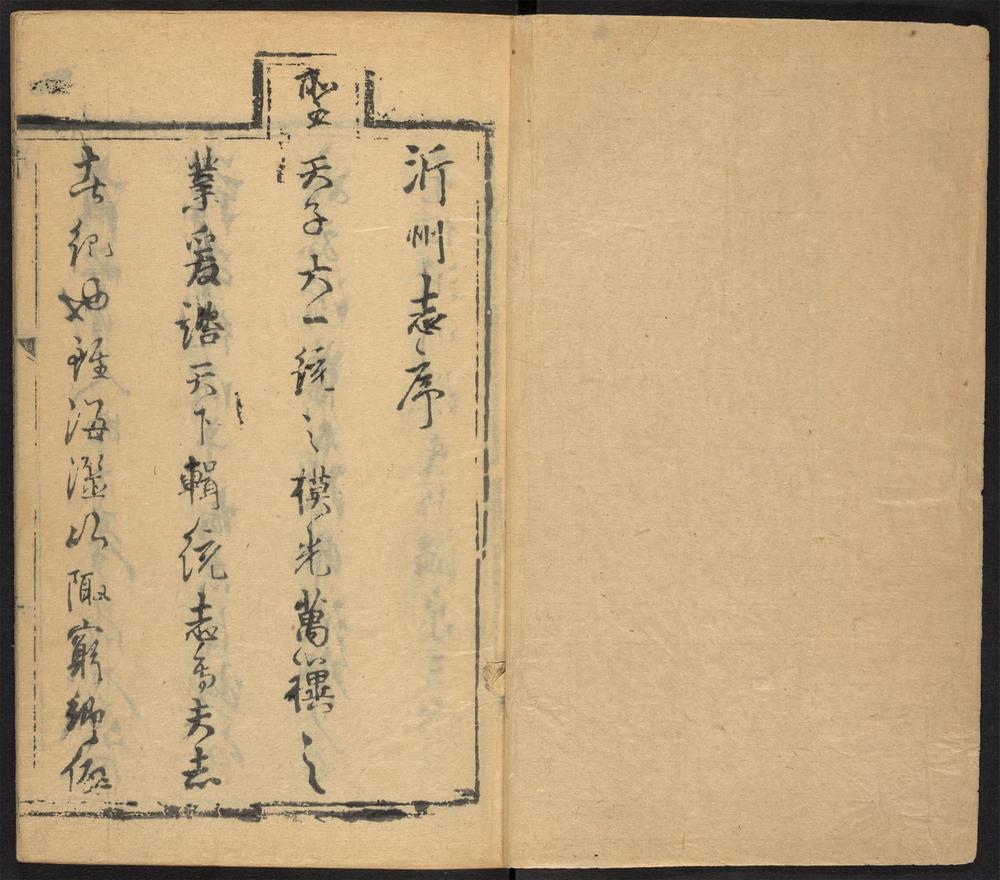 沂州志序
聖天子大一統之模光萬禩之
業爰諮天下輯統志焉夫志
者紀也雖海澨山陬窮鄉僻